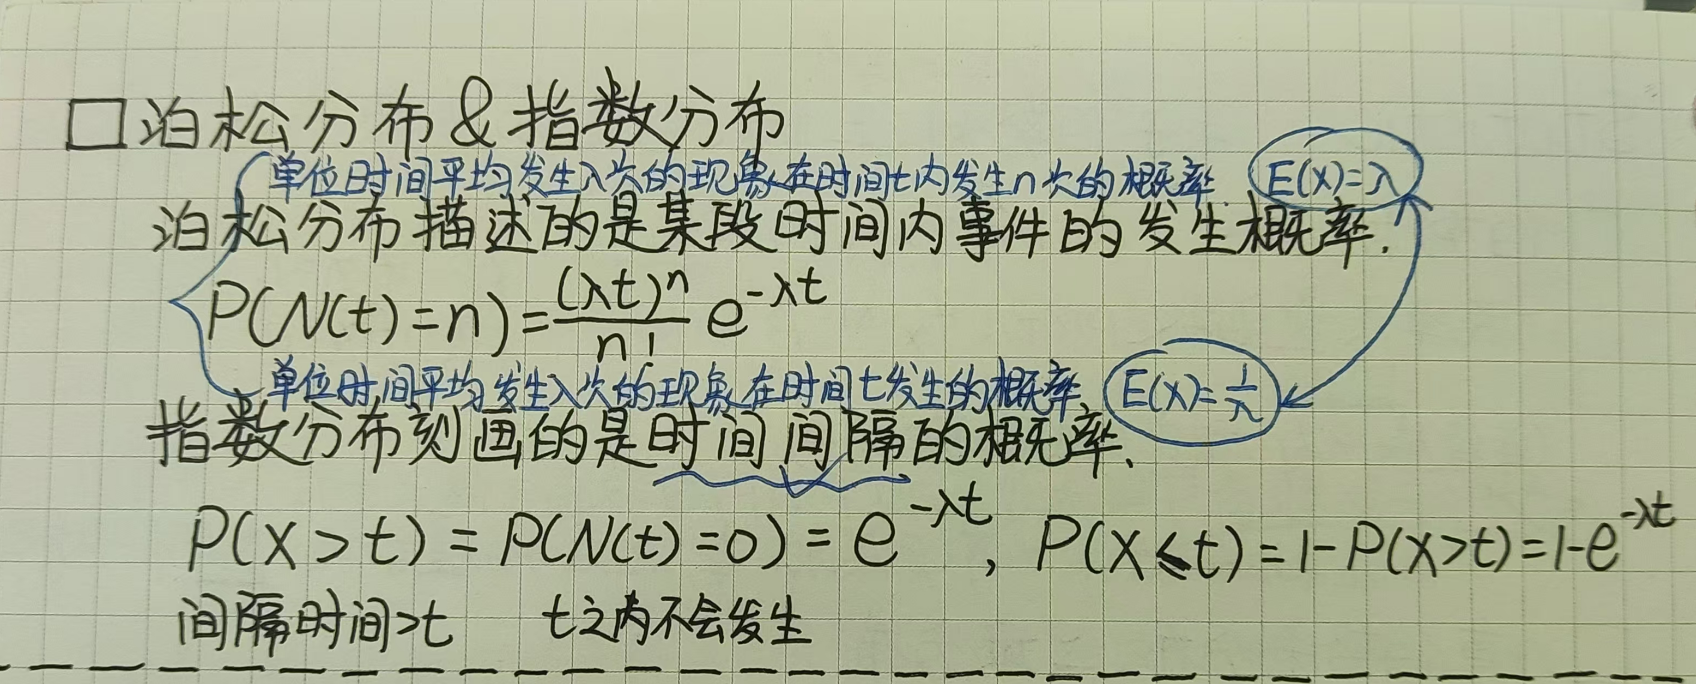 □泊松分布&指数分布
单位时间平均发生λ次的现象在时间t内发生n次的概率 E(X)=λ
泊松分布描述的是某段时间内事件的发生概率.
P(N(t)=n)=\frac{(λt)^n}{n!} e^{-λt}
单位时间平均发生入次的现象在时间t发生的概率 E(X)=\frac{1}{λ}
指数分布刻画的是时间间隔的概率.
P(X>t)=P(N(t)=0)=e^{-λt}, P(X≤t)=1-P(X>t)=1-e^{-λt}
间隔时间>t t之内不会发生